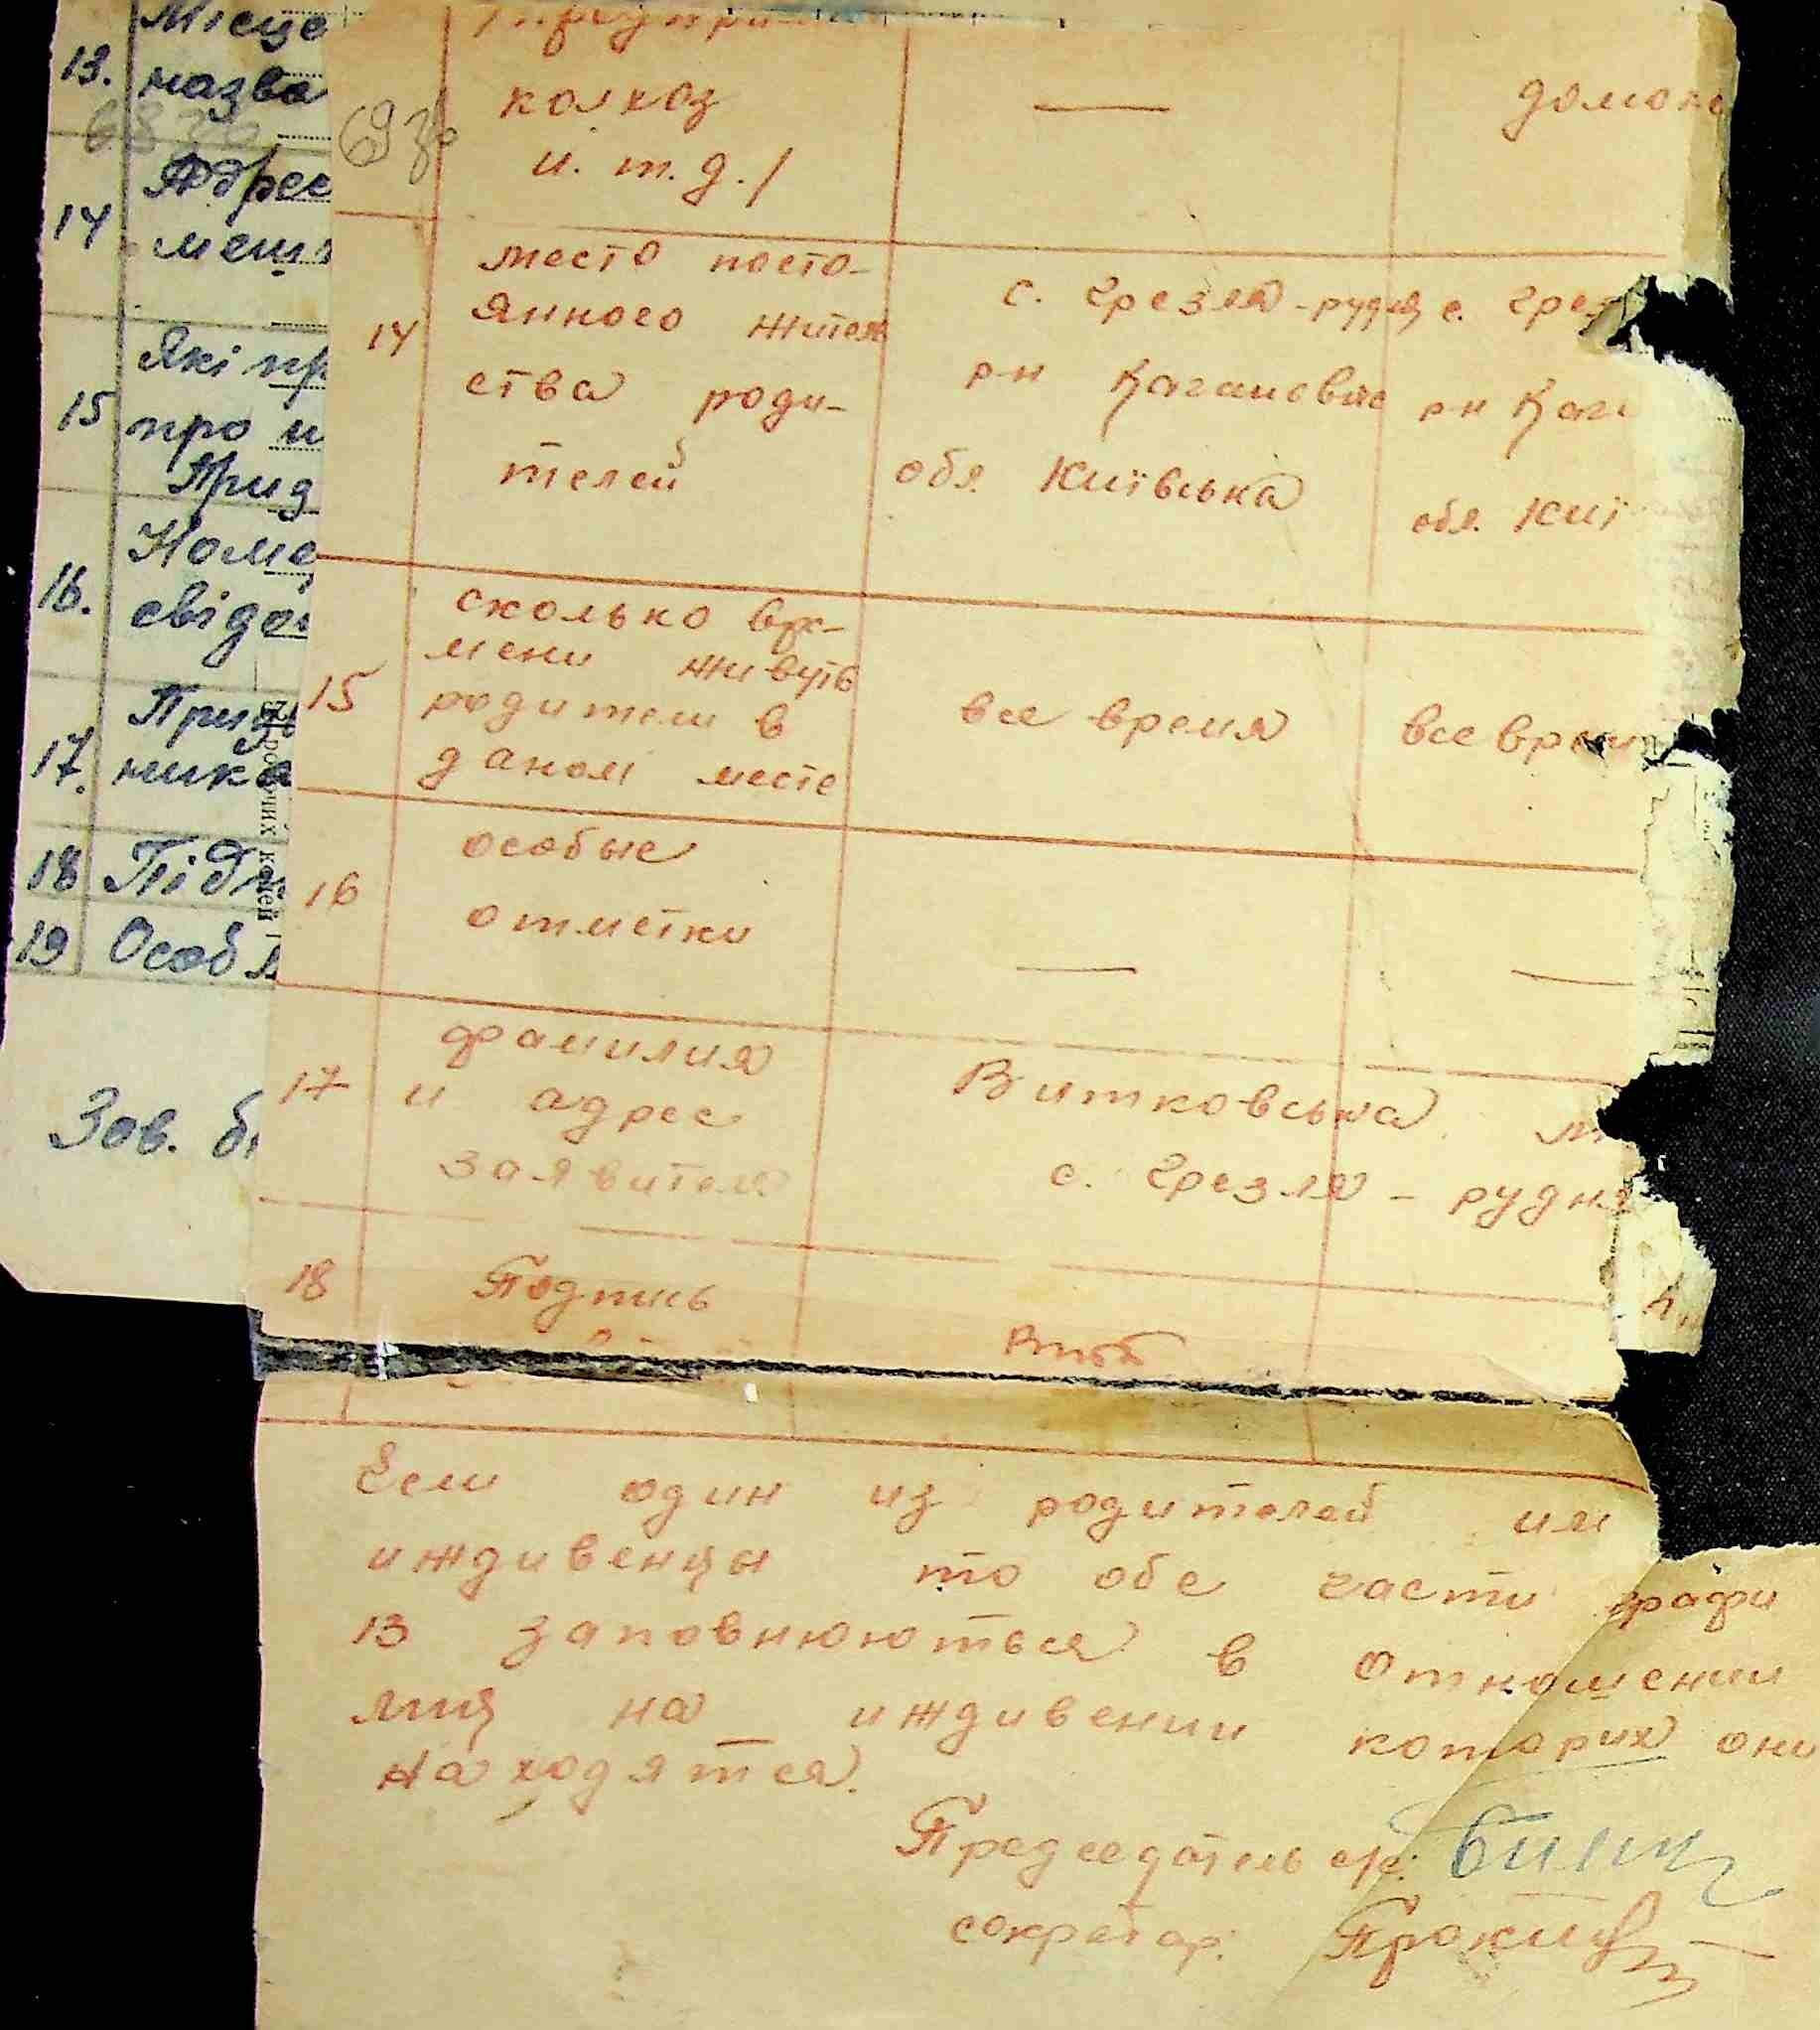 13. Місце
назва
14 Адрес
меш
15 Які пр
про н
16. Номе
свідо
17.
ника
18 Підп
19 Особл
Зав. б
колхоз — домохо
и. т. д./
место посто-
14 янного житель
ства роди-
телей
с. Грезля-рудня с. Грез
р-н Каганович р-н Кага
обл. Київська обл. Киї
сколько вре-
мени живуть
15 родители в
даном месте
все время все время
16 особые
отметки — —
17 фамилия
и адрес
заявителя
Витковська М
с. Грезля - рудня
18 Подпись
Если один из родителей или
иждивенцы то обе части графи
13 заповнюються в отношении
лиц на иждивении которих они
находятся.
Председатель с/с:
секретар: